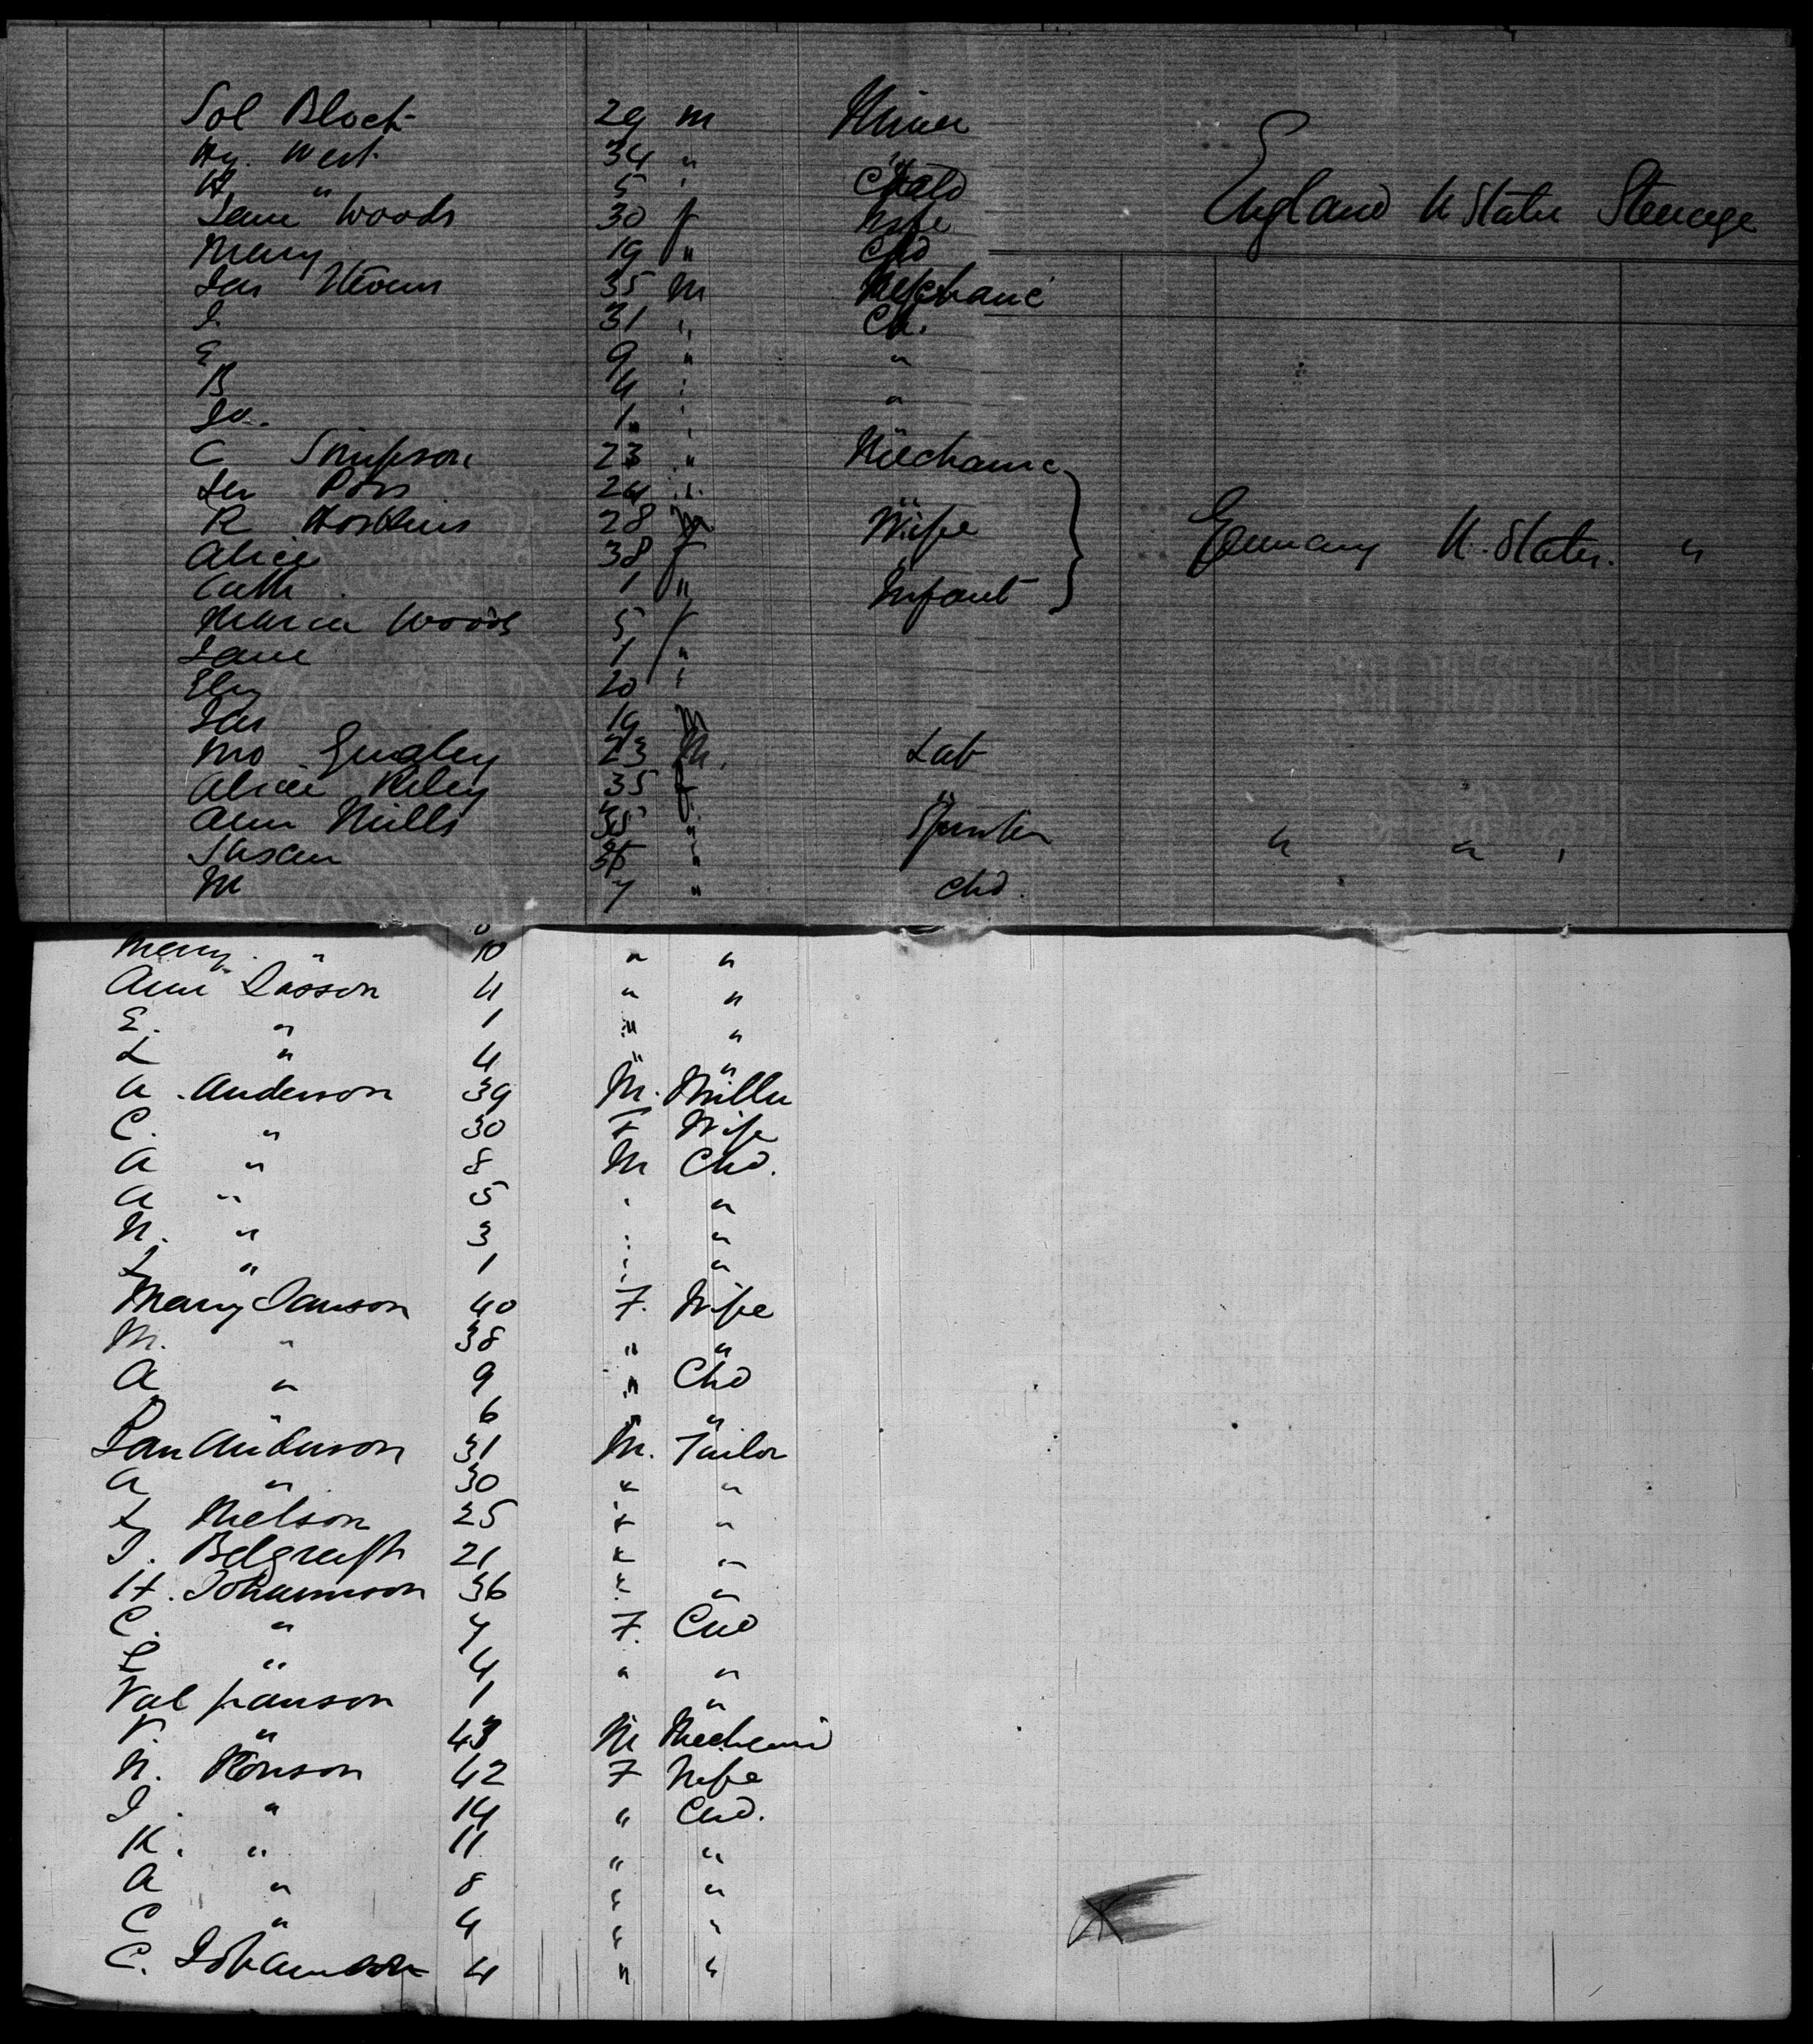 Sol Block 29 m Miner
Hy. West 34 "
H " 5 " Child England U States Steerage
Jane Woods 30 f Wife
Mary 19 " Chd
Jas 35 M Mechanic
J. 31 " Ch.
E 9 " "
B 4 " "
Jo. 1 "
C Simpson 23 " Mechanic
24 "
R Hoskins 28 m Wife Germany U. States. "
Alice 38 f
Cath 1 " Infant
Maria Woods 5 f
Jane 7 "
Eliz 20 "
Jas 19 m
Mo 23 M. Lab
Alice Riley 35 f
Ann Mills 35 " Spinster " " "
Susan 36 "
M 7 " Chd.
Mary " 10 " "
Ann 4 " "
E. " 1 " "
L " 4 " "
A. Anderson 39 M. Miller
C. " 30 F Wife
A " 8 M Chd.
A " 5 " "
N. " 3 " "
L " 1 " "
Mary Janson 40 F. Wife
M. " 38 " "
A " 9 " Chd
" 6 " "
Anderson 31 M. Tailor
A " 30 " "
L Nielson 25 " "
J. Belgraft 21 " "
H. Johannson 36 " "
C. " 7 F. Chd
L " 4 " "
Val 1 "
" 43 M Mechanic
N. 42 F Wife
J. " 14 " Chd.
K. " 11 " "
A " 8 " "
C " 4 " "
C. Johannson 4 " "